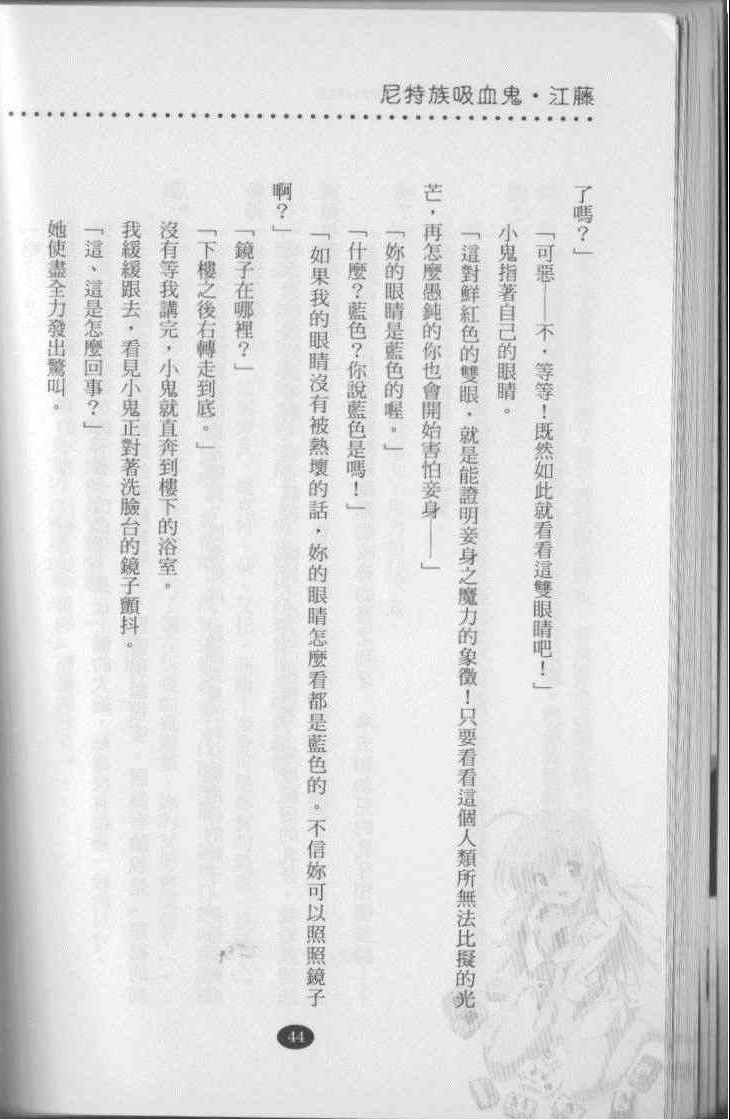 尼特族吸血鬼・江藤
了嗎？」
「可惡——不，等等！既然如此就看看這雙眼睛吧！」
小鬼指著自己的眼睛。
「這對鮮紅色的雙眼，就是能證明妾身之魔力的象徵！只要看看這個人類所無法比擬的光
芒，再怎麼愚鈍的你也會開始害怕妾身——」
「妳的眼睛是藍色的喔。」
「什麼？藍色？你說藍色是嗎！」
「如果我的眼睛沒有被熱壞的話，妳的眼睛怎麼看都是藍色的。不信妳可以照照鏡子
啊？」
「鏡子在哪裡？」
「下樓之後右轉走到底。」
沒有等我講完，小鬼就直奔到樓下的浴室。
我緩緩跟去，看見小鬼正對著洗臉台的鏡子顫抖。
「這、這是怎麼回事？」
她使盡全力發出驚叫。
44